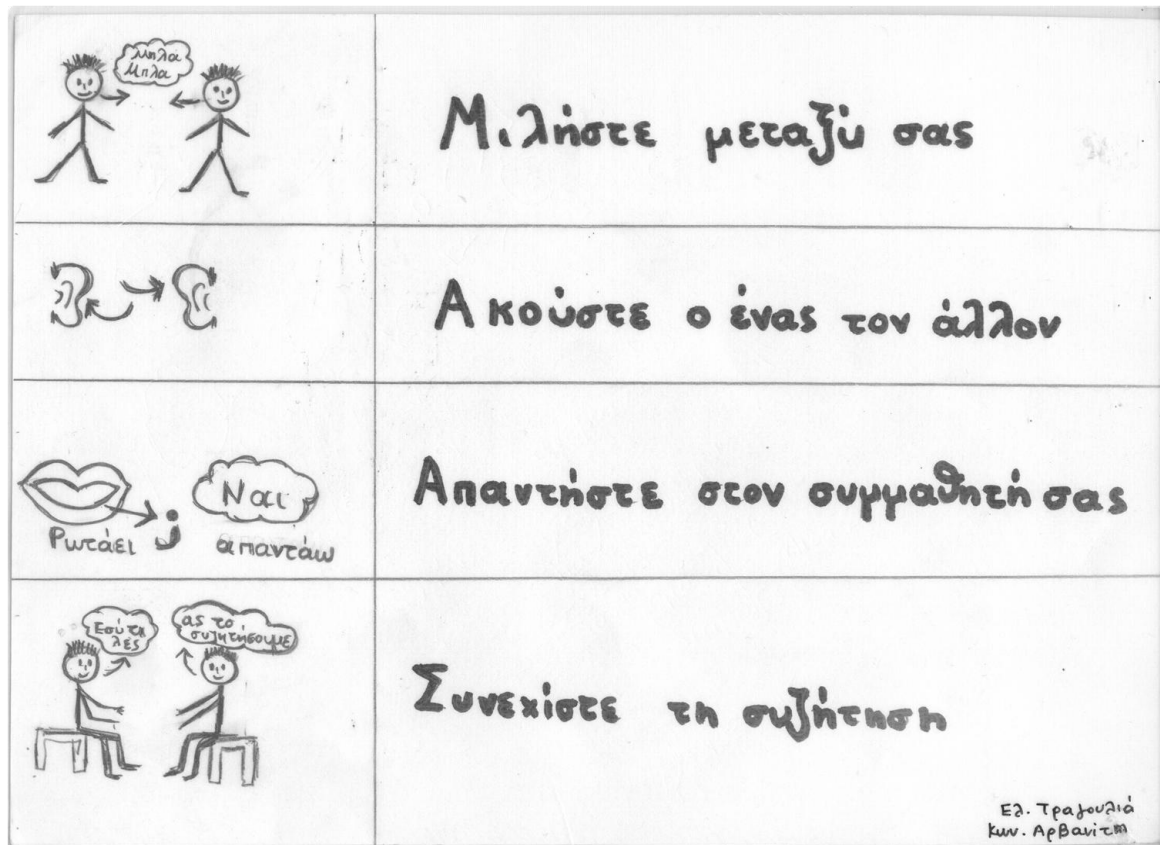 Μπλα
Μπλα
Μιλήστε μεταξύ σας
Ακούστε ο ένας τον άλλον
Ναι
Ρωτάει ; απαντάω
Απαντήστε στον συμμαθητή σας
Εσύ τι
λές
ας το
συζητήσουμε
Συνεχίστε τη συζήτηση
Ελ. Τραγουλιά
Κων. Αρβανίτη